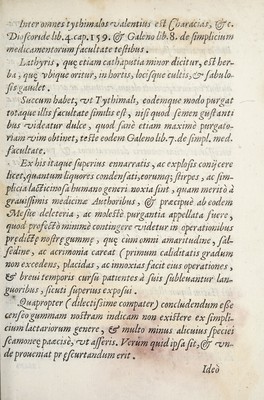 Inter omnes tythimalos valentius est Characias, &c.
Dioscoride lib. 4. cap. 159. & Galeno lib. 8. de simplicium
medicamentorum facultate testibus.
Lathyris, quę etiam cathapotia minor dicitur, est her-
ba, quę vbique oritur, in hortis, locisque cultis, & fabulo-
sis gaudet.
Succum habet, vt Tythimali, eodemque modo purgat
totaque illis facultate similis est, nisi quod semen gustanti
bus videatur dulce, quod sanè etiam maximè purgato-
riam vim obtinet, teste eodem Galeno lib. 7. de simpl. med.
facultate.
Ex his itaque superius ennarratis, ac explosis conijcere
licet, quantum liquores condensati, eorumq; stirpes, ac sim-
plicia lacticinosa humano generi noxia sint, quam meritò à
grauissimis medicinæ Authoribus, & præcipuè ab eodem
Mesue deleteria, ac molestè purgantia appellata fuere,
quod profectò minimè contingere videtur in operationibus
prædictę nostrę gummę, quę cùm omni amaritudine, sal-
sedine, ac acrimonia careat (primum caliditatis gradum
non excedens, placidas, ac innoxias facit eius operationes,
& breui temporis cursu patentes à suis subleuantur lan-
guoribus, sicuti superius exposui.
Quapropter (dilectissime compater) concludendum esse
censeo gummam nostram indicam non existere ex simpli-
cium lactariorum genere, & multo minus alicuius speciei
scamoneę præcisè, vt asseris. Verùm quid ipsa sit, & vn-
de proueniat perscrutandum erit.
Ideò